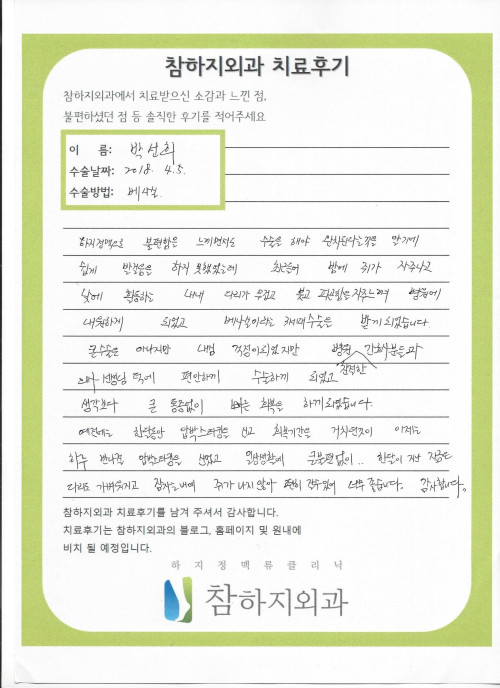 참하지외과 치료후기
참하지외과에서 치료받으신 소감과 느낀 점,
불편하셨던 점 등 솔직한 후기를 적어주세요
이 름: 박선희
수술날짜: 2018. 4. 5.
수술방법: 베나실
하지정맥으로 불편함은 느끼면서도 수술은 해야 완치된다는 말에
쉽게 발걸음은 하지 못했었는데 최근들어 밤에 쥐가 자주나고
낮에 활동하는 내내 다리가 무겁고 붓고 피곤함은 자주느껴 병원에
내원하게 되었고 베나실이라는 수술을 받게 되었습니다
큰수술은 아니지만 내심 걱정이되었지만 병원 간호사분들과
친절한
선생님 덕에 편안하게 수술하게 되었고
생각보다 큰 통증없이 빠른 회복을 하게되었습니다.
예전에는 한달동안 압박스타킹을 신고 회복기간을 거쳤던것이 이제는
하루 반나절 압박스타킹을 신었고 일상생활에 큰불편없이.. 한달이 지난 지금은
다리도 가벼워지고 잠자는내에 쥐가 나지 않아 편히 잘수있어 너무 좋습니다. 감사합니다.
참하지외과 치료후기를 남겨 주셔서 감사합니다.
치료후기는 참하지외과의 블로그, 홈페이지 및 원내에
비치 될 예정입니다.
하지정맥류클리닉
참하지외과